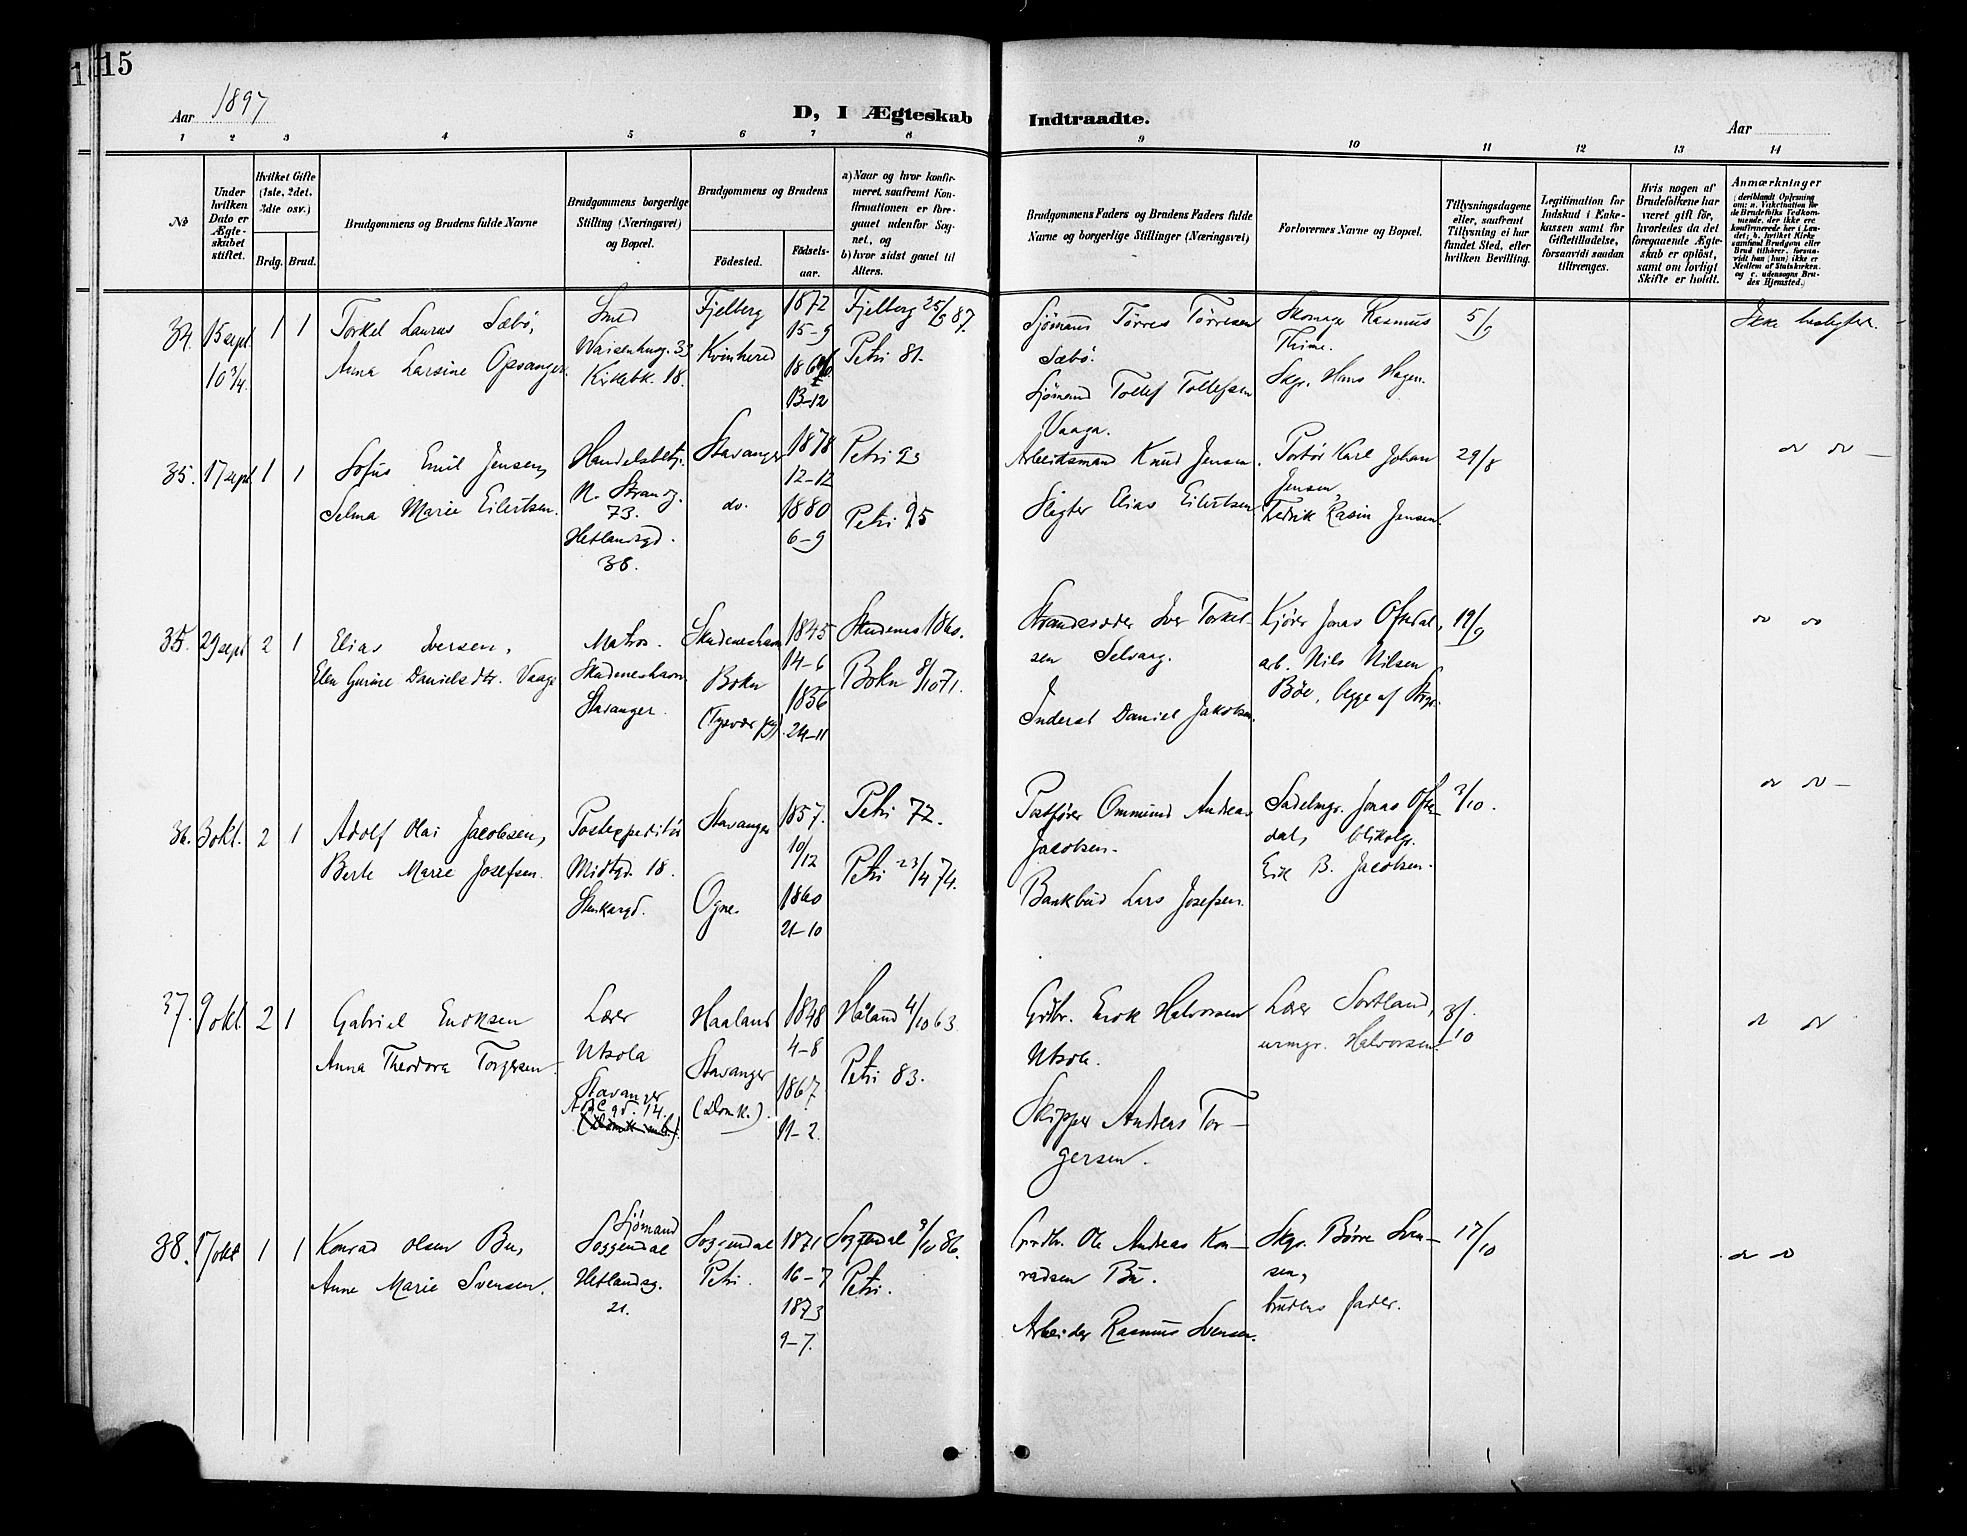 15
Aar 1897
D, I Ægteskab Indtraadte.
Aar
1 2 3 4 5 6 7 8 9 10 11 12 13 14
No
Under hvilken Dato er Ægteskabet stiftet.
Hvilket Gifte (1ste, 2det, 3die osv.)
Brdg. Brud.
Brudgommens og Brudens fulde Navne
Brudgommens borgerlige Stilling (Næringsvei) og Bopæl.
Brudgommens og Brudens
Fødested. Fødselsaar.
a) Naar og hvor konfirmeret, saafremt Konfirmationen er foregaaet udenfor Sognet, og
b) hvor sidst gaaet til Alters.
Brudgommens Faders og Brudens Faders fulde Navne og borgerlige Stillinger (Næringsvei)
Forlovernes Navne og Bopæl.
Tillysningsdagene eller, saafremt Tillysning ei har fundet Sted, efter hvilken Bevilling.
Legitimation for Indskud i Enkekassen samt for Giftetilladelse, forsaavidt saadan tiltrænges.
Hvis nogen af Brudefolkene har været gift før, hvorledes da det foregaaende Ægteskab er opløst, samt om lovligt Skifte er holdt.
Anmærkninger
34. 15 sept 10 3/4 1 1
Torkel Laurus Sæbö,
Anna Larsine Opsanger.
Smed
Waisenhusg. 33
Kirkebk. 18.
Fjelberg
Kvinherred
1872
15-9
13-12
Fjelberg 25/9 87.
Petri 81.
Sjömand Törres Törresen
Sæbö.
Sjömand Tollef Tollefsen
Vaaga.
Skomager Rasmus
Thime.
Skpr. Hans Hagen.
5/9
Ikke beslegtet.
35. 17 sept 1 1
Sofus Emil Jensen,
Selma Marie Eilertsen.
Handelsbetj.
N. Strandg.
73.
Hetlandsgd.
38.
Stavanger
do.
1878
12-12
1880
6-9
Petri 93
Petri 95
Arbeidsmand Knud Jensen.
Slagter Elias Eilertsen
Portör Karl Johan
Jensen,
Fredrik Rasin Jensen.
29/8
do do —
35. 29 sept 2 1
Elias Iversen,
Elen Gurine Danielsdtr. Vaage
Matros.
Skudeneshavn
Stavanger.
Skudeneshavn
Bokn
1845
14-6
1856
24-11
Skudenes 1860.
Bokn 8/10 71.
Strandsidder Iver Torkelsen
Selvaag.
Inderst Daniel Jakobsen.
Kjörer Jonas Oftedal,
arb. Nils Nilsen
Böe, begge af Stvgr.
19/9
do do
36. 3 okt. 2 1
Adolf Olai Jacobsen,
Berte Marie Josefsen.
Postexpeditör
Midtgd. 18.
Stenkargd.
Stavanger
Ogne.
1857.
10/12
1860
21-10
Petri 72.
Petri 23/4 74.
Postförer Ommund Andreas
Jacobsen.
Bankbud Lars Josefsen.
Sadelmgr. Jonas Oftedal,
blikslgr.
Erik B. Jacobsen.
3/10.
do do —
37. 9 okt. 2 1
Gabriel Enoksen
Anna Theodora Torgersen.
Lærer
Utsola
Stavanger
Haaland
Stavanger
(Domk.).
1848
4-8
1867
11-2.
Håland 4/10 63.
Petri 83.
Grdbr. Enok Halvorsen
Utsola.
Skipper Andreas Tor-
gersen.
Lærer Sortland,
urmgr. Halvorsen.
3/10
do do
38. 17 okt 1 1
Konrad Olsen Bu,
Anne Marie Svensen.
Sjömand
Soggendal
Hetlandsg.
21.
Soggendal
Petri.
1871
16-7
1873
9-7.
Soggendal 3/10 86.
Petri.
Grdbr. Ole Andreas Kon-
radsen Bu.
Arbeider Rasmus Svensen.
Skpr. Börre Sven-
sen,
brudens fader.
17/10
do do